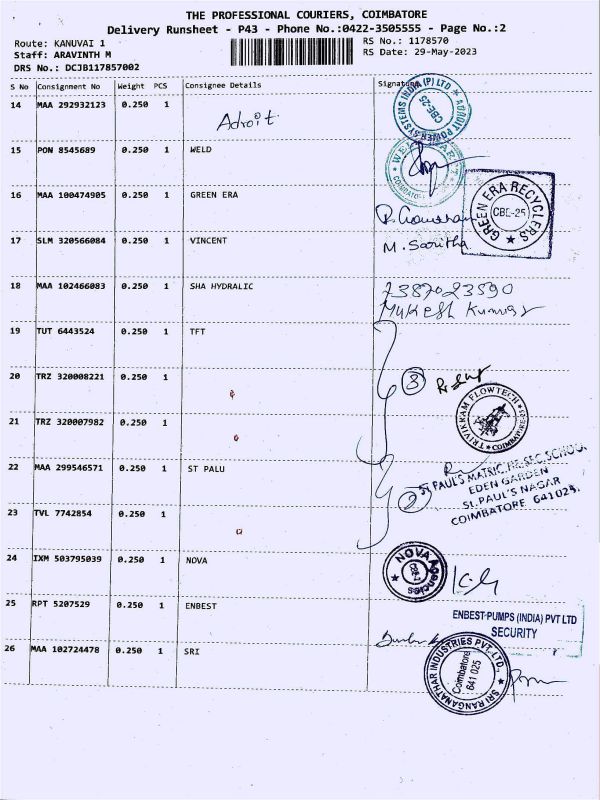 THE PROFESSIONAL COURIERS, COIMBATORE
Delivery Runsheet - P43 - Phone No.:0422-3505555 - Page No.:2
Route: KANUVAI 1 RS No.: 1178570
Staff: ARAVINTH M RS Date: 29-May-2023
DRS No.: DCJB117857002
S No Consignment No Weight PCS Consignee Details Signature
14 MAA 292932123 0.250 1 Adroit
ADROIT POWER SYSTEMS INDIA (P) LTD CBE-25
15 PON 8545689 0.250 1 WELD
16 MAA 100474905 0.250 1 GREEN ERA
GREEN ERA RECYCLERS CBE-25
17 SLM 320566084 0.250 1 VINCENT M. Saritha
18 MAA 102466083 0.250 1 SHA HYDRALIC 7387023590
Mukesh Kumar
19 TUT 6443524 0.250 1 TFT
20 TRZ 320008221 0.250 1 3
21 TRZ 320007982 0.250 1
TRIVIKRAM FLOWTECH COIMBATORE
22 MAA 299546571 0.250 1 ST PALU
ST. PAUL'S MATRIC. HR. SEC. SCHOOL
EDEN GARDEN
St. PAUL'S NAGAR
COIMBATORE 641 025.
2
23 TVL 7742854 0.250 1
24 IXM 503795039 0.250 1 NOVA
NOVA Agencies
25 RPT 5207529 0.250 1 ENBEST
ENBEST-PUMPS (INDIA) PVT LTD
SECURITY
26 MAA 102724478 0.250 1 SRI
SRI RANGANATHAR INDUSTRIES PVT. LTD.,
Coimbatore
641 025